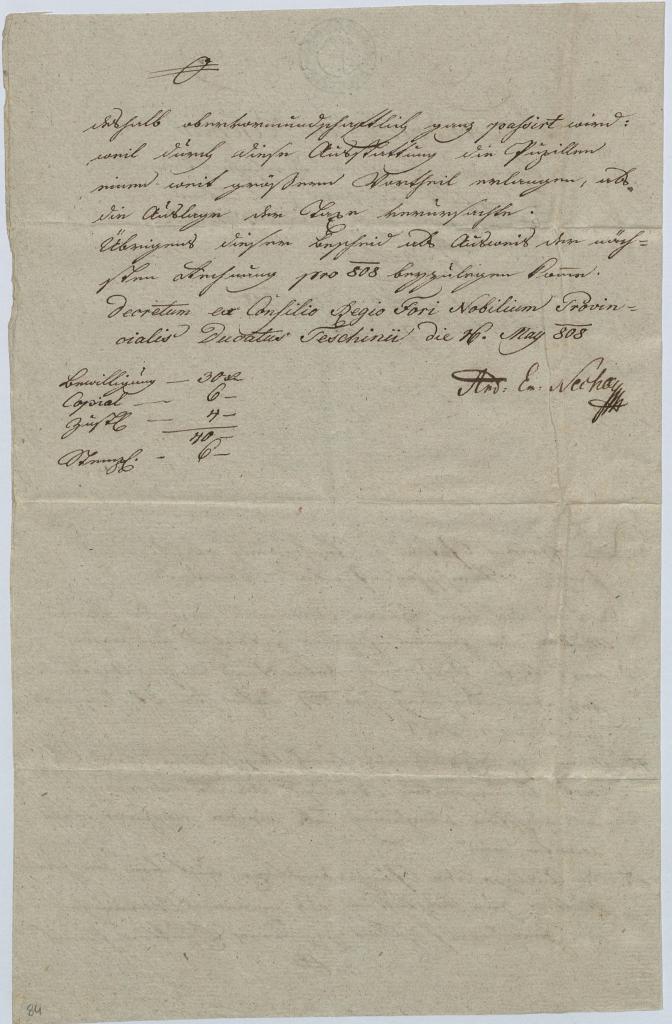 deshalb obervormundschaftlich ganz passirt wird:
weil durch diese Ausstattung die Pupillen
einen weit größern Vortheil erlangen, als
die Auslage der Taxe verursachte.
Übrigens dieser Bescheid als Ausweis der näch=
sten Rechnung pro 808 beyzulegen komme.
Decretum ex Consilio Regio Fori Nobilium Provin=
cialis Ducatus Teschinii die 16. May 808
And: Er: Nechay
Bewilligung — 30 x
Copial — 6 —
Zustl — 4 —
40 —
Stempl. — 6 —
84